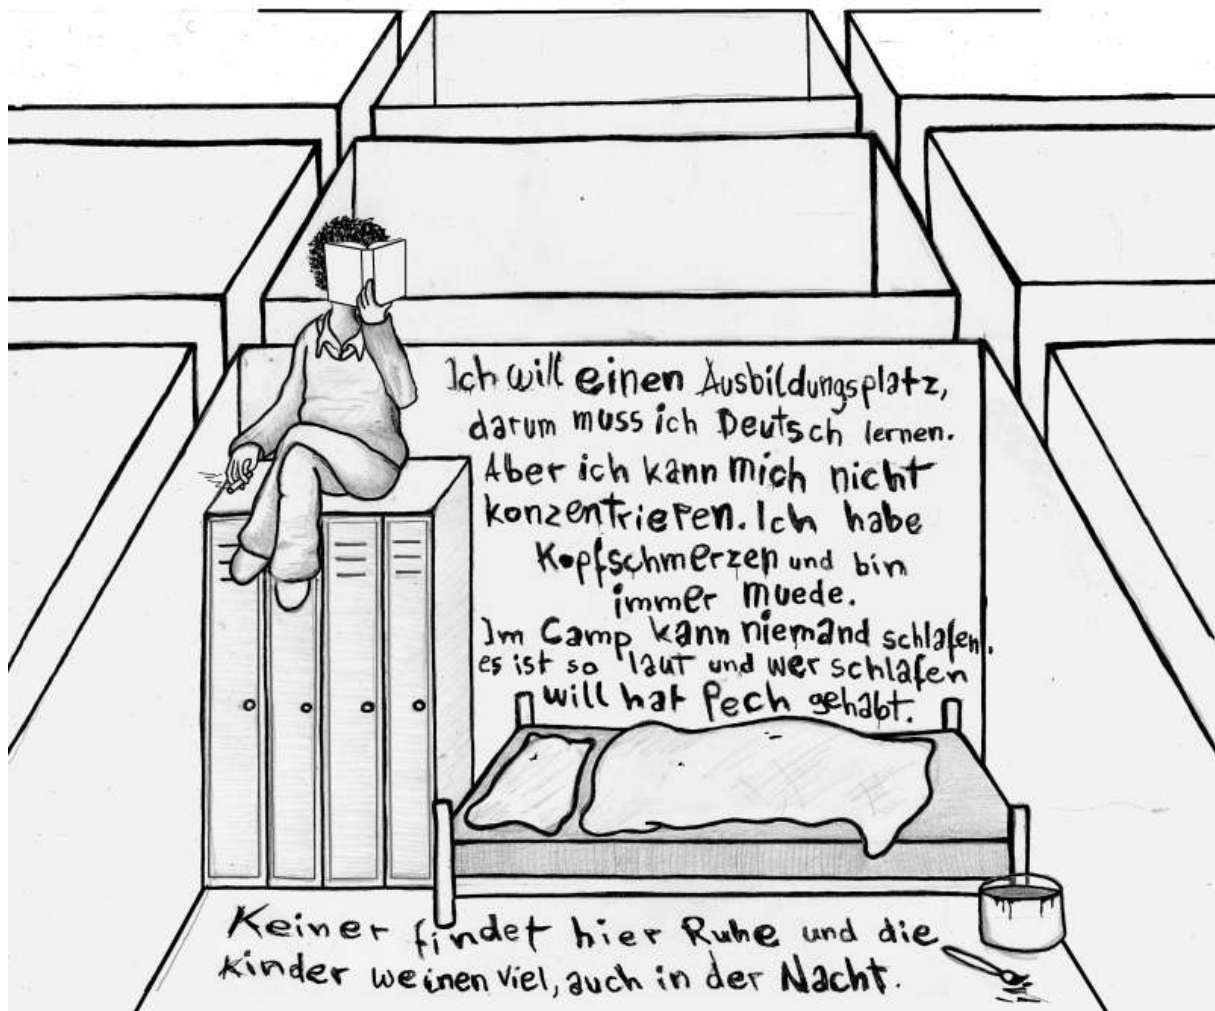 Ich will einen Ausbildungsplatz,
darum muss ich Deutsch lernen.
Aber ich kann mich nicht
konzentrieren. Ich habe
Kopfschmerzen und bin
immer muede.
Im Camp kann niemand schlafen.
es ist so laut und wer schlafen
will hat Pech gehabt.
Keiner findet hier Ruhe und die
Kinder weinen viel, auch in der Nacht.